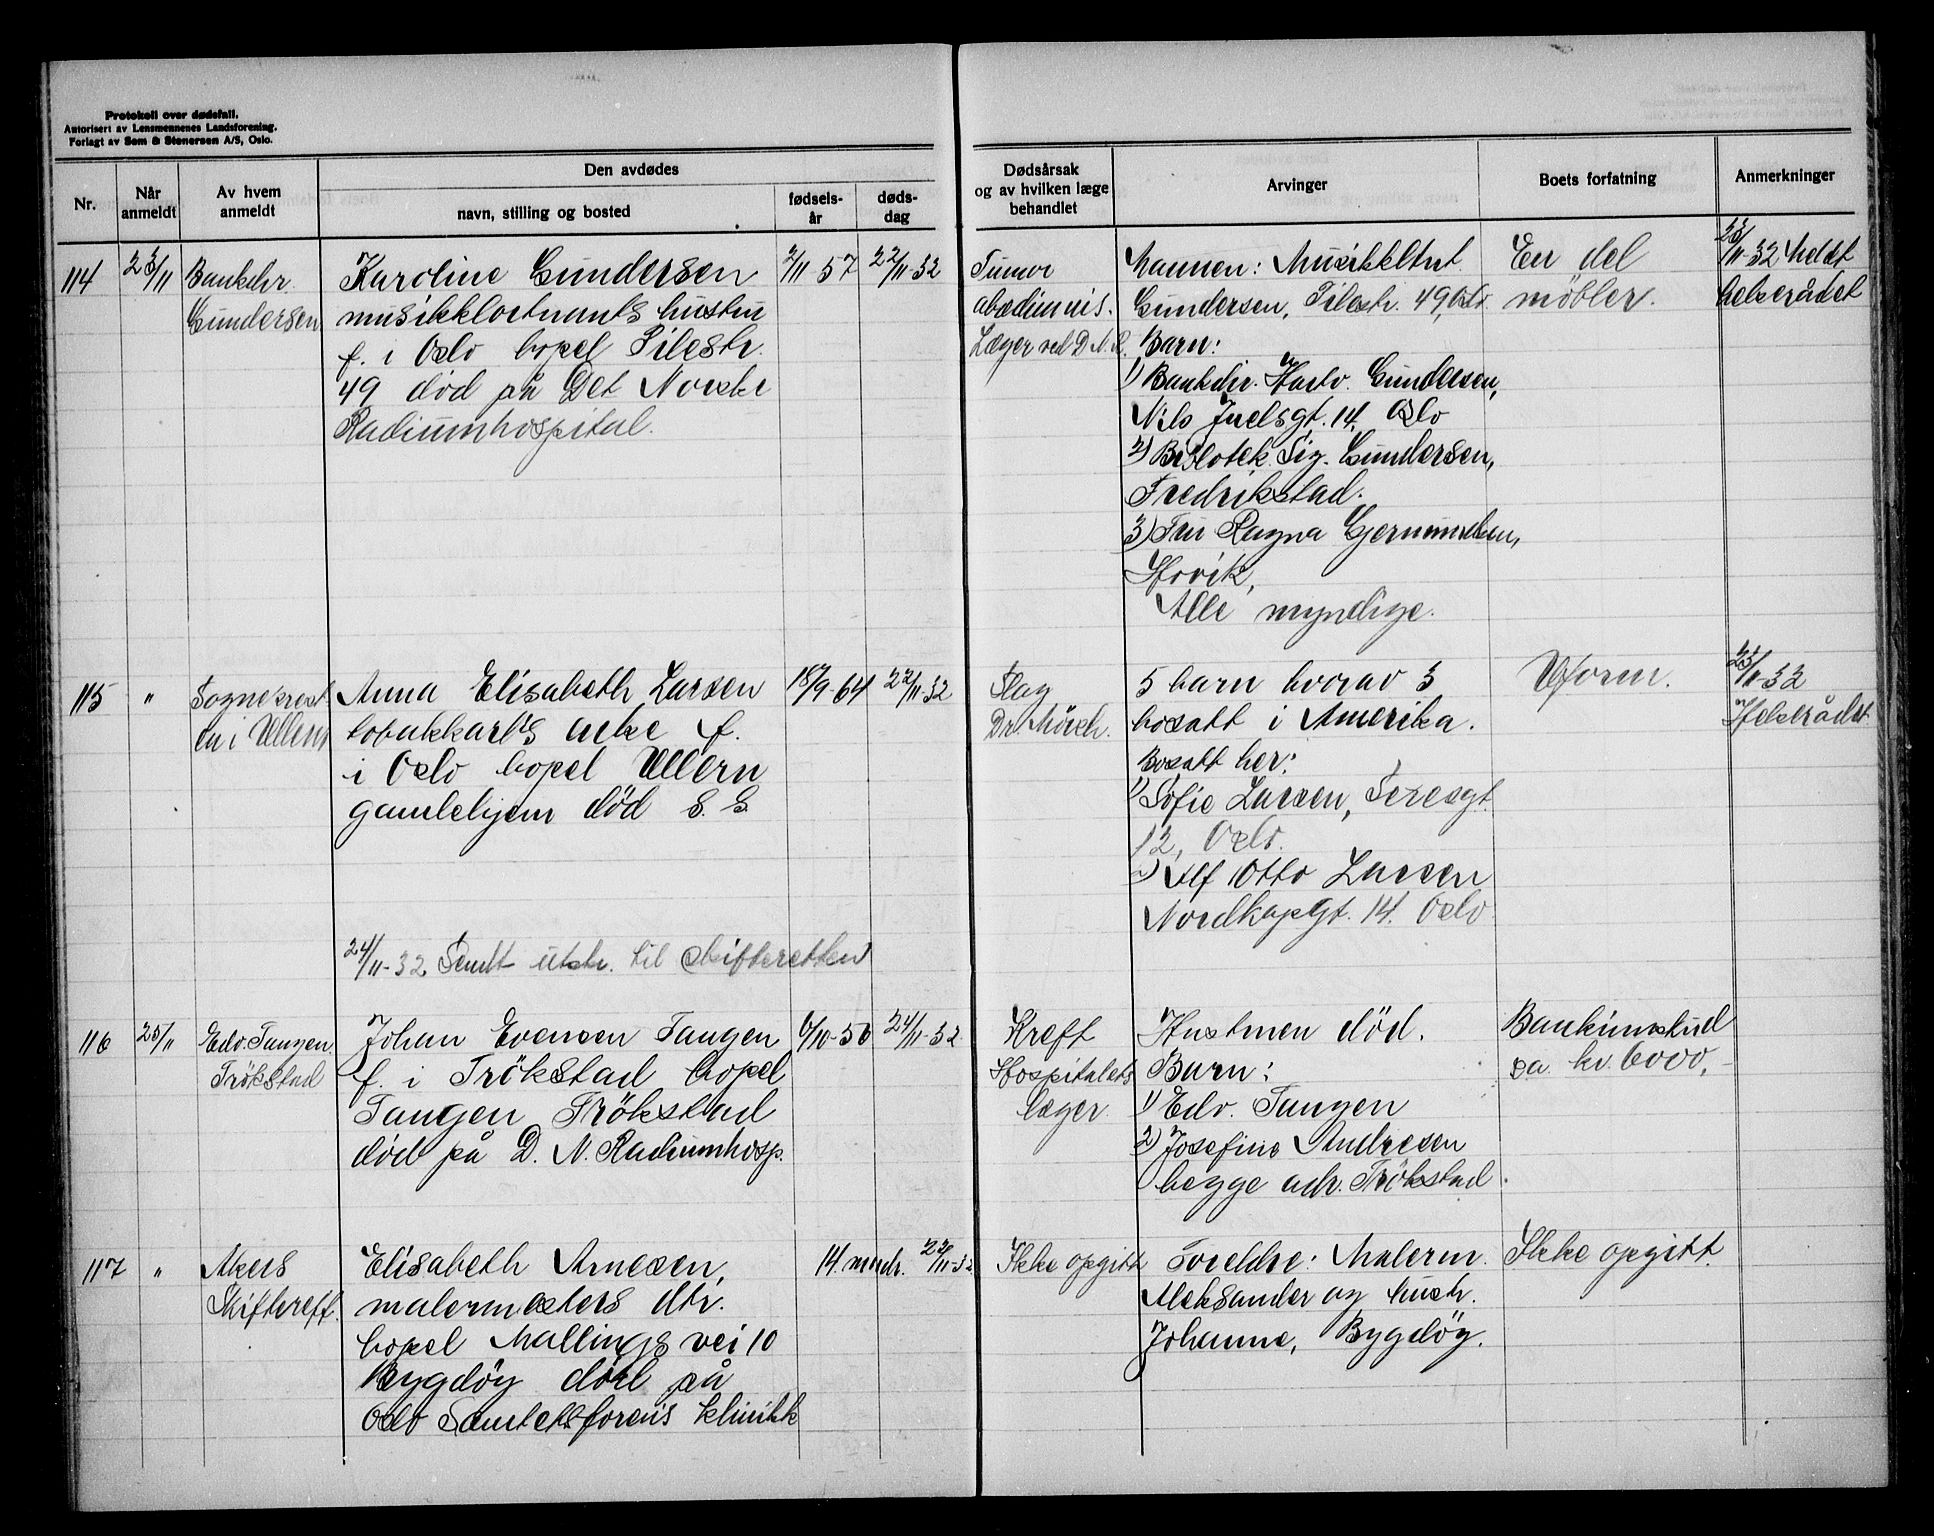 Protokoll over dødsfall.
Autorisert av Lensmennenes Landsforening.
Forlagt av Sem & Stenersen A/S, Oslo.
Nr.
Når anmeldt
Av hvem anmeldt
Den avdødes
navn, stilling og bosted
fødsels-år
døds-dag
Dødsårsak og av hvilken læge behandlet
Arvinger
Boets forfatning
Anmerkninger
114
23/11
Bankchr.
Gundersen
Karoline Gundersen
musikkloitnants hustru
f. i Oslo bopel Pilestr.
49 død på Det Norske
Radiumhospital.
2/11 57
22/11-32
Tumor
abedimnis.
Læger ved D.N.R.
Mannen: Musikkltnt
Gundersen, Pilestr. 49, Oslo.
Barn:
1) Bankchr. Harlv. Gundersen,
Nils Juelsgt. 14. Oslo
2) Bibliotek. Sig. Gundersen,
Fredrikstad.
3) Fru Ragna Gjermundsen,
Høvik,
Alle myndige.
En del
møbler.
23/11-32 Meldt
helserådet
115
"
Sognepresten
i Ullern
Anna Elisabeth Larsen
tobakkarb's enke f.
i Oslo bopel Ullern
gamlehjem død s. s.
18/9-64
22/11-32
Slag
Dr. Mörch.
5 barn hvorav 3
bosatt i Amerika.
Bosatt her:
1) Sofie Larsen, Seresgt.
12, Oslo.
2) Alf Otto Larsen
Nordkapgt. 14. Oslo
Uform.
23/11-32
Helserådet
24/11-32 Sendt utskr. til skifteretten
116
25/11
Edv. Tangen
Trökstad
Johan Evensen Tangen
f. i Trökstad bopel
Tangen Trökstad
død på D. N. Radiumhosp.
6/10-56
24/11-32
Kreft
Hospitalets
læger.
Hustruen død.
Barn:
1) Edv. Tangen
2) Josefine Andresen
begge adr. Trökstad.
Bankinnskud
ca. kr. 6000,-
117
"
Akers
Skifterett.
Elisabeth Arnesen,
malermesters dtr.
bopel Mallings vei 10
Bygdöy død på
Oslo Sanitetsforens klinikk
14 mndr.
22/11-32
Ikke opgitt
Foreldre: Malerm.
Aleksander og hustr.
Johanne, Bygdöy.
Ikke opgitt.